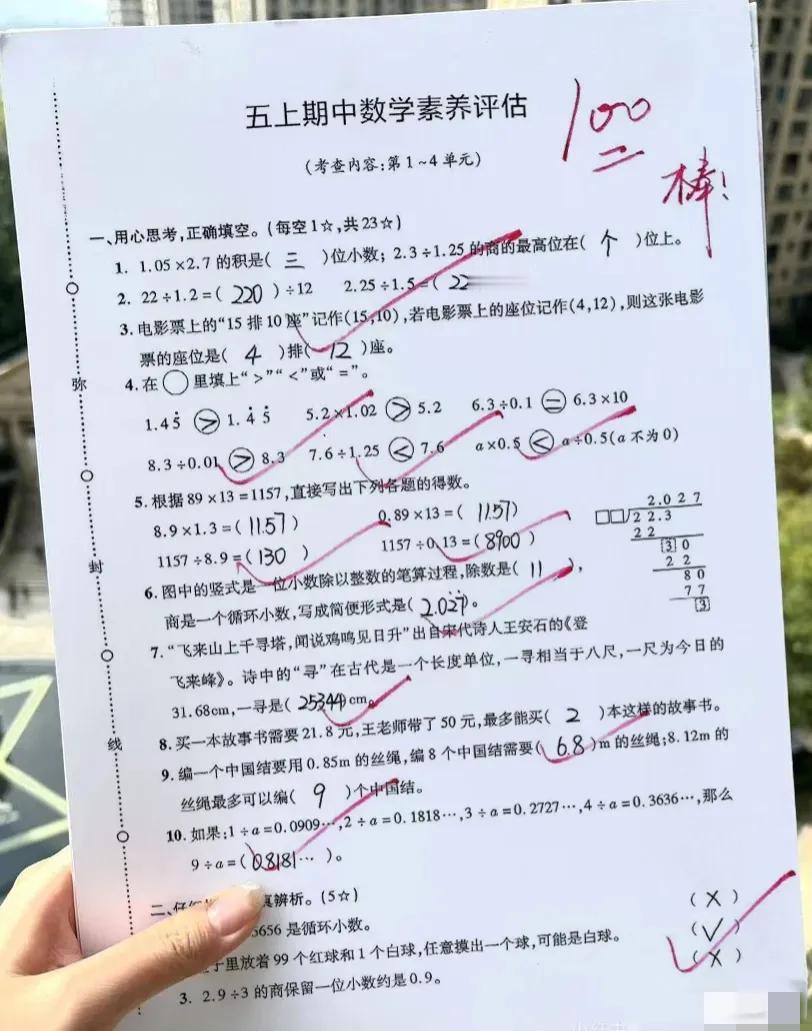 五上期中数学素养评估
100
棒!
(考查内容:第1~4单元)
一、用心思考,正确填空。(每空1☆,共23☆)
1. 1.05×2.7的积是( 三 )位小数; 2.3÷1.25的商的最高位在( 个 )位上。
2. 22÷1.2=( 220 )÷12 2.25÷1.5=( 22
3. 电影票上的“15排10座”记作(15,10),若电影票上的座位记作(4,12),则这张电影
票的座位是( 4 )排( 12 )座。
4. 在○里填上“>”“<”或“=”。
1.45̇ > 1.4̇5̇ 5.2×1.02 > 5.2 6.3÷0.1 = 6.3×10
8.3÷0.01 > 8.3 7.6÷1.25 < 7.6 a×0.5 < a÷0.5(a不为0)
5. 根据89×13=1157,直接写出下列各题的得数。
8.9×1.3=( 11.57 ) 0.89×13=( 11.57 )
1157÷8.9=( 130 ) 1157÷0.13=( 8900 )
2.027
□□)22.3
22
3 0
2 2
80
77
3
6. 图中的竖式是一位小数除以整数的笔算过程,除数是( 11 ),
商是一个循环小数,写成简便形式是( 2.02̇7̇ )。
7. “飞来山上千寻塔,闻说鸡鸣见日升”出自宋代诗人王安石的《登
飞来峰》。诗中的“寻”在古代是一个长度单位,一寻相当于八尺,一尺为今日的
31.68cm,一寻是( 253.44 )cm。
8. 买一本故事书需要21.8元,王老师带了50元,最多能买( 2 )本这样的故事书。
9. 编一个中国结要用0.85m的丝绳,编8个中国结需要( 6.8 )m的丝绳;8.12m的
丝绳最多可以编( 9 )个中国结。
10. 如果:1÷a=0.0909…,2÷a=0.1818…,3÷a=0.2727…,4÷a=0.3636…,那么
9÷a=( 0.8181… )。
二、仔 真辨析。(5☆)
5656是循环小数。 ( X )
子里放着99个红球和1个白球,任意摸出一个球,可能是白球。 ( √ )
3. 2.9÷3的商保留一位小数约是0.9。 ( X )
弥
封
线